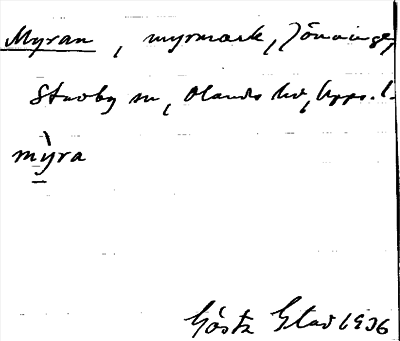 Myran, myrmark, Jönninge,
Stavby sn, Olands hd, Upps. l.
mỳra
Gösta Glad 1936